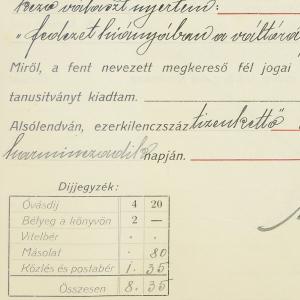 választ nyertem:
"fedezet hiányában a váltó
Miről, a fent nevezett megkereső fél jogai
tanusitványt kiadtam.
Alsólendván, ezerkilenczszáz tizenkettő"
harminczadik napján.
Díjjegyzék:
Óvásdíj 4 20
Bélyeg a könyvön 2 —
Vitelbér . .
Másolat . 80
Közlés és postabér 1. 35
Összesen 8. 35